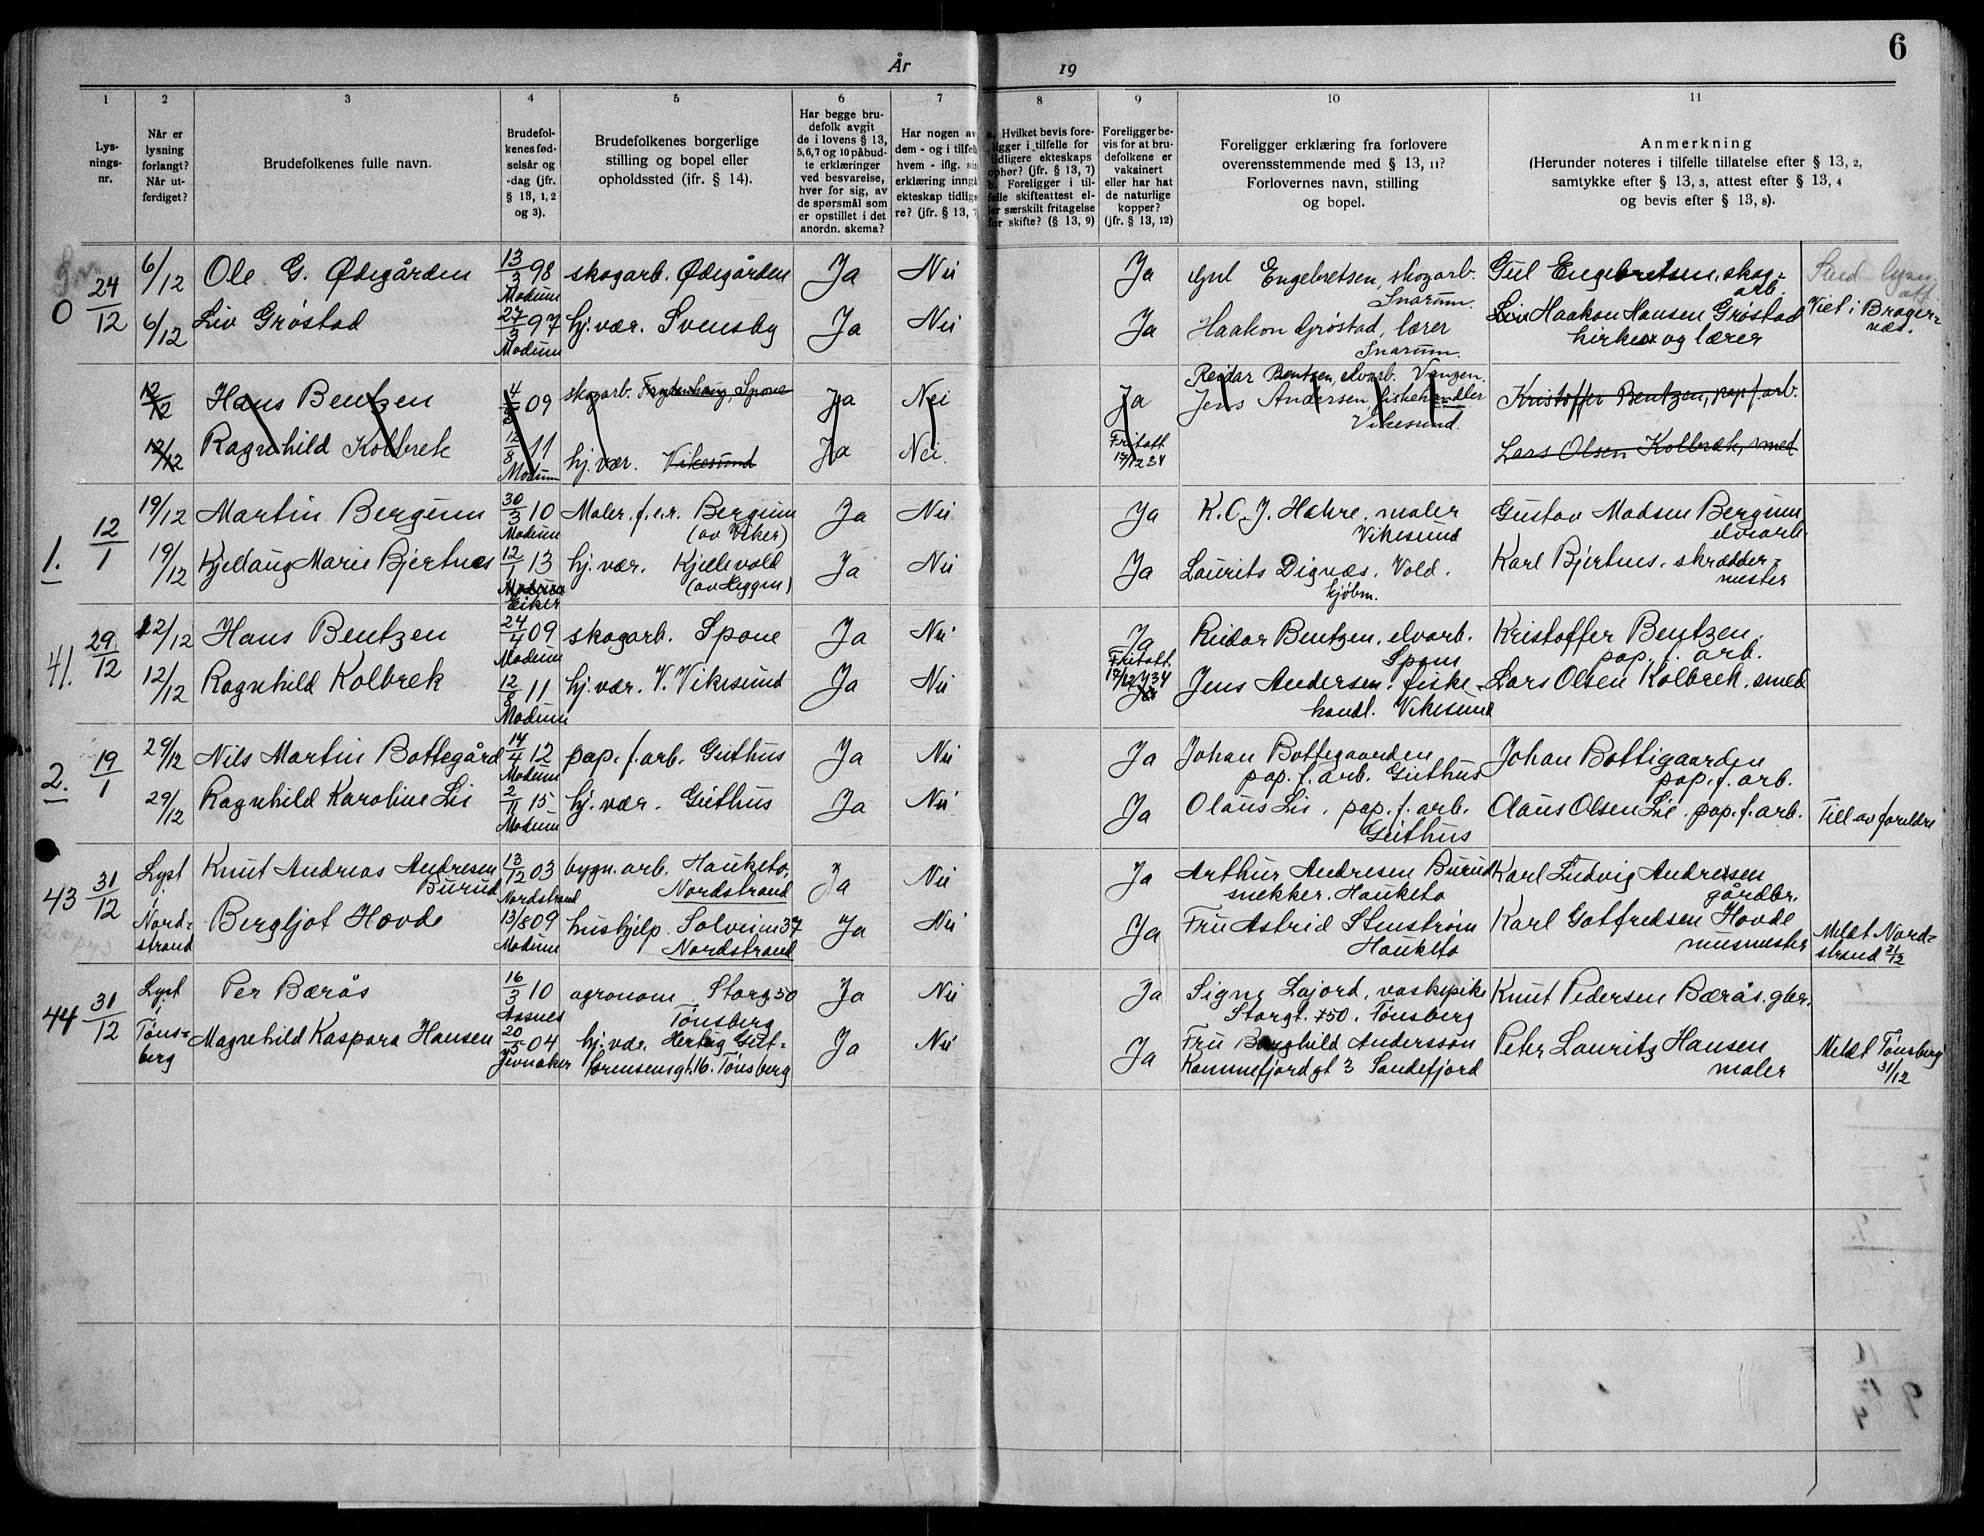 År
19
6
1
2
3
4
5
6
7
8
9
10
11
Lys-
nings-
nr.
Når er
lysning
forlangt?
Når ut-
ferdiget?
Brudefolkenes fulle navn.
Brudefol-
kenes fød-
selsår og
-dag (jfr.
§ 13, 1, 2
og 3).
Brudefolkenes borgerlige
stilling og bopel eller
opholdssted (ifr. § 14).
Har begge bru-
defolk avgit
de i lovens § 13,
5, 6, 7 og 10 påbud-
te erklæringer
ved besvarelse,
hver for sig, av
de spørsmål som
er opstillet i det
anordn. skema?
Har nogen av
dem - og i tilfelle
hvem - iflg. sin
erklæring inngå
ekteskap tidlige
re? (jfr. § 13, 7
a. Hvilket bevis fore-
ligger i tilfelle for
tidligere ekteskaps
ophør? (jfr. § 13, 7)
b. Foreligger i til-
felle skifteattest el-
ler særskilt fritagelse
for skifte? (§ 13, 9)
Foreligger be-
vis for at bru-
defolkene er
vaksinert
eller har hat
de naturlige
kopper?
(jfr. § 13, 12)
Foreligger erklæring fra forlovere
overensstemmende med § 13, 11?
Forlovernes navn, stilling
og bopel.
Anmerkning
(Herunder noteres i tilfelle tillatelse efter § 13, 2,
samtykke efter § 13, 3, attest efter § 13, 4
og bevis efter § 13, 8).
0 24/12 6/12 Ole G. Ødegården 13/3 98 Modum skogarb. Ødegården Ja Nei Ja Gul Engebretsen, skogarb. Snarum. Gul Engebretsen, skog- arb.
6/12 Liv Grøstad 27/3 97 Modum hj. vær. Svensby Ja Nei Ja Haakon Grøstad, lærer Snarum. Liv Haakon Hansen Grøstad kirkes. og lærer Viet i Brager- næs.
12/12 Hans Bentzen 09 skogarb. Spone Ja Nei Ja Reidar Bentzen, elvarb. Vangen. Jens Andersen, fiskehandler Vikesund. Kristoffer Bentzen, pap. f. arb.
12/12 Ragnhild Kolbrek 12/8 11 Modum hj. vær. Vikesund Ja Nei. Fritatt 17/12 34 Lars Olsen Kolbræk, smed
1. 12/1 19/12 Martin Bergum 30/3 10 Modum Maler. f.e.r. Bergum (av Viker) Ja Nei Ja K. O. J. Hæhre, maler Vikesund Gustav Madsen Bergum elvearb.
19/12 Kjellaug Marie Bjertnes 12/1 13 Modum Eiker hj. vær. Kjellevold (av Heggen) Ja Nei Ja Laurits Dignæs, Vold. kjøbm. Karl Bjertnes, skrædder- mester
41. 29/12 12/12 Hans Bentzen 24/4 09 Modum skogarb. Spone Ja Nei Ja Reidar Bentzen, elvarb. Spone Kristoffer Bentzen. pap. f. arb.
12/12 Ragnhild Kolbrek 12/8 11 Modum hj. vær. V. Vikesund Ja Nei Fritatt. 17/12 34 Jens Andersen, fiske- handl. Vikesund Lars Olsen Kolbrek, smed
2. 19/1 29/12 Nils Martin Bottegård 14/4 12 Modum pap. f. arb. Geithus Ja Nei Ja Johan Bottegaarden pap. f. arb. Geithus Johan Bottigaarden pap. f. arb.
29/12 Ragnhild Karoline Lie 2/11 15 Modum hj. vær. Geithus Ja Nei Ja Olaus Lie, pap. f. arb. Geithus Olaus Olsen Lie, pap. f. arb. Till. av foreldre
43 31/12 Lyst i Nord- strand Knut Andreas Andresen Burud 13/12 03 Nordstrand bygn. arb. Hauketo, Nordstrand Ja Nei Ja Arthur Andresen Burud snekker, Hauketo Karl Ludvig Andresen gårdbr.
Bergljot Hovde 13/8 09 Modum hushjelp. Solveien 37 Nordstrand Ja Nei Ja Fru Astrid Stenstrøm Hauketo Karl Gotfredsen Hovde murmester Meldt Nord- strand 31/12
44 31/12 Lyst i Tøns- berg Per Bærås 16/3 10 Aasnes agronom Storgt 50 Tønsberg Ja Nei Ja Signe Lajord, vaskepike Storgt. 50, Tønsberg Knut Pedersen Bærås, gbr.
Magnhild Kaspara Hansen 20/5 04 Jevnaker hj. vær. Hertug Gut- tormsensgt. 16. Tønsberg Ja Nei Ja Fru Borghild Andersson Kammefjordgt 3 Sandefjord Peter Lauritz Hansen maler Meldt Tønsberg 31/12